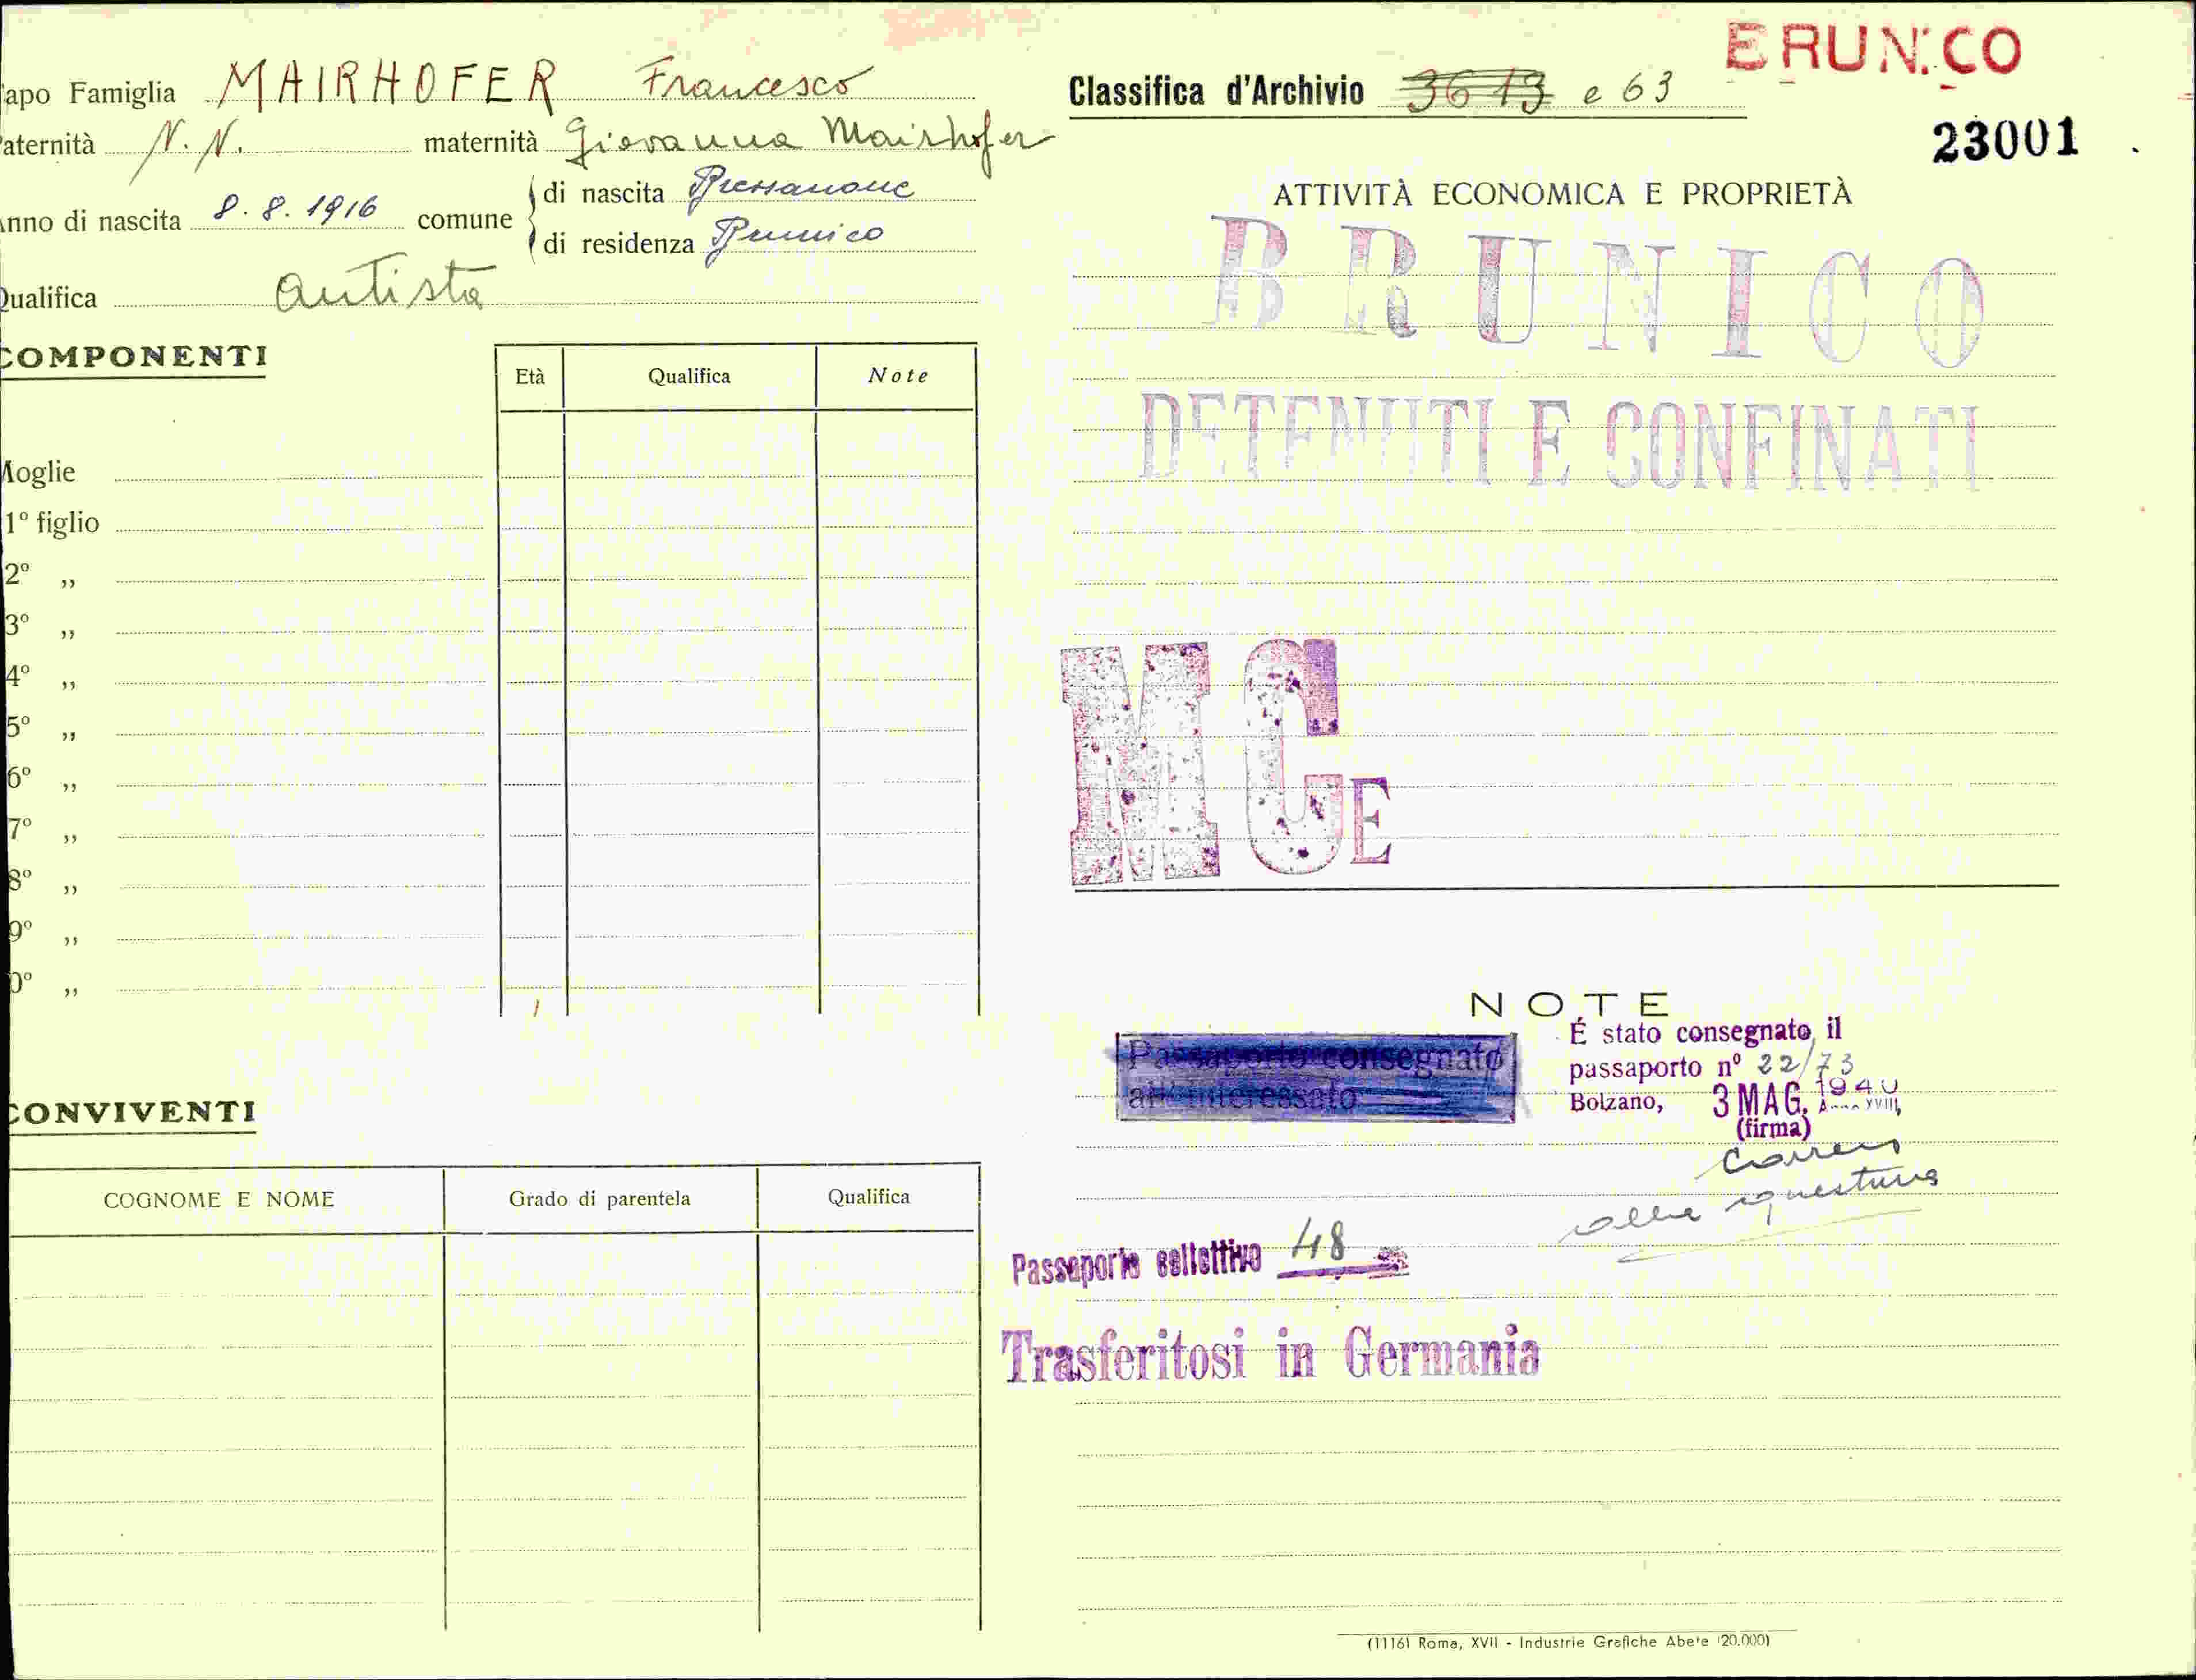 apo Famiglia MAIRHOFER Francesco
aternità N. N. maternità Giovanna Mairhofer
nno di nascita 8. 8. 1916 comune
di nascita Bressanone
di residenza Brunico
Qualifica autista
COMPONENTI
Età Qualifica Note
Moglie
1º figlio
2º ,,
3º ,,
4º ,,
5º ,,
6º ,,
7º ,,
8º ,,
9º ,,
0º ,,
CONVIVENTI
COGNOME E NOME Grado di parentela Qualifica
ERUNICO
Classifica d'Archivio 36 13 e 63
23001
ATTIVITÀ ECONOMICA E PROPRIETÀ
BRUNICO
DETENUTI E CONFINATI
MC E
NOTE
Passaporto consegnato
all'interessato
É stato consegnato il
passaporto nº 22/73
Bolzano, 3 MAG. 1940 Anno XVIII
(firma)
alla questura
Passaporto collettivo 48
Trasferitosi in Germania
(1116) Roma, XVII - Industrie Grafiche Abete (20.000)